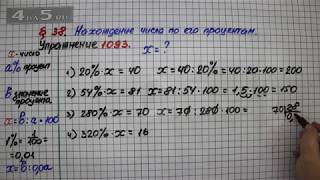 § 38. Нахождение числа по его процентам.
Упражнение 1093.
x = ?
x - число
a% процент
b значение процента
x = b : a · 100
1% = 1/100 =
= 0,01
x = b : 0,0a
1) 20% · x = 40 x = 40 : 20% = 40 : 20 · 100 = 200
2) 54% · x = 81 x = 81 : 54 · 100 = 1,5 · 100 = 150
3) 280% · x = 70 x = 70 : 280 · 100 =
4) 320% · x = 16